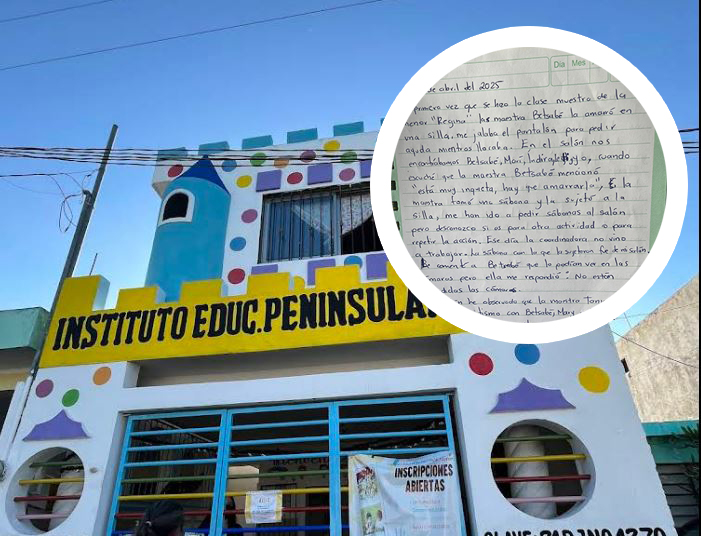 INSTITUTO EDUC. PENINSULA
INSCRIPCIONES
ABIERTAS
Dia Mes
de abril del 2025
primera vez que se hizo la clase muestra de la
menor "Regina" la maestra Betsabé la amarró en
una silla, me jalaba el pantalón para pedir
ayuda mientras lloraba. En el salón nos
encontrábamos Betsabé, Mari, y yo, cuando
escuché que la maestra Betsabé mencionó
"está muy inqueta, hay que amarrarla", la
maestra tomó una sábana y la sujetó a la
silla, me han ido a pedir sábanas al salón
pero desconozco si es para otra actividad o para
repetir la acción. Ese día la coordinadora no vino
a trabajar. La sábana con la que la sujetaron fue de mi salón.
Le comenté a Betsabé que la podían ver en las
cámaras pero ella me respondió: No están
las cámaras
he observado que la maestra
con Betsabé, Mary